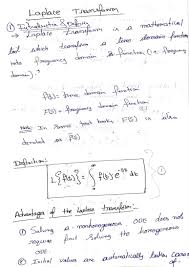 Laplace Transform
① Introduction & Definition
→ Laplace Transform is a mathematical
tool which transform a time domain function
into frequency domain function (s = frequency
domain).
f(t) = time domain function
F(s) = frequency domain function
Note: In some text books, F(s) is also
denoted as f̄(s)
Definition:
L{f(t)} = ∫₀^∞ f(t) e^{-st} dt
①
Advantages of the Laplace transform:-
① Solving a nonhomogeneous ODE does not
require first solving the homogeneous
ODE
② Initial values are automatically taken care